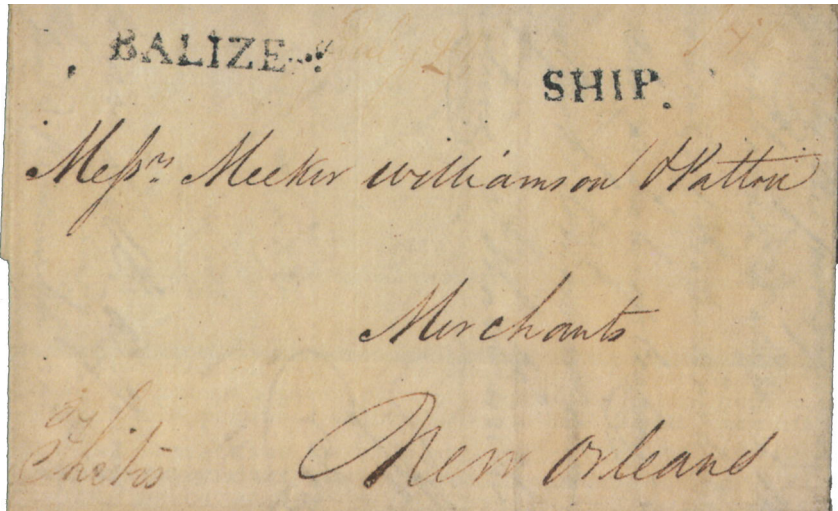 BALIZE July 21
SHIP.
Messrs Meeker Williamson & Patton
Merchants
New Orleans